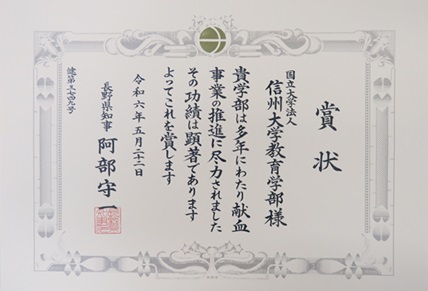 賞状
国立大学法人
信州大学教育学部様
貴学部は多年にわたり献血
事業の推進に尽力されました
その功績は顕著であります
よってこれを賞します
令和六年五月二十二日
長野県知事 阿部守一